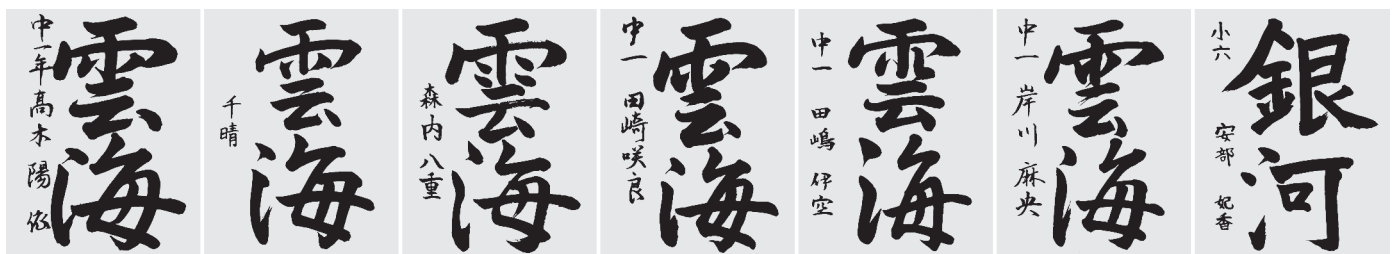 雲海
中一年高木陽依
雲海
千晴
雲海
森内八重
雲海
中一 田崎咲良
雲海
中一 田嶋 伊空
雲海
中一 岸川 麻央
銀河
小六 安部 妃香